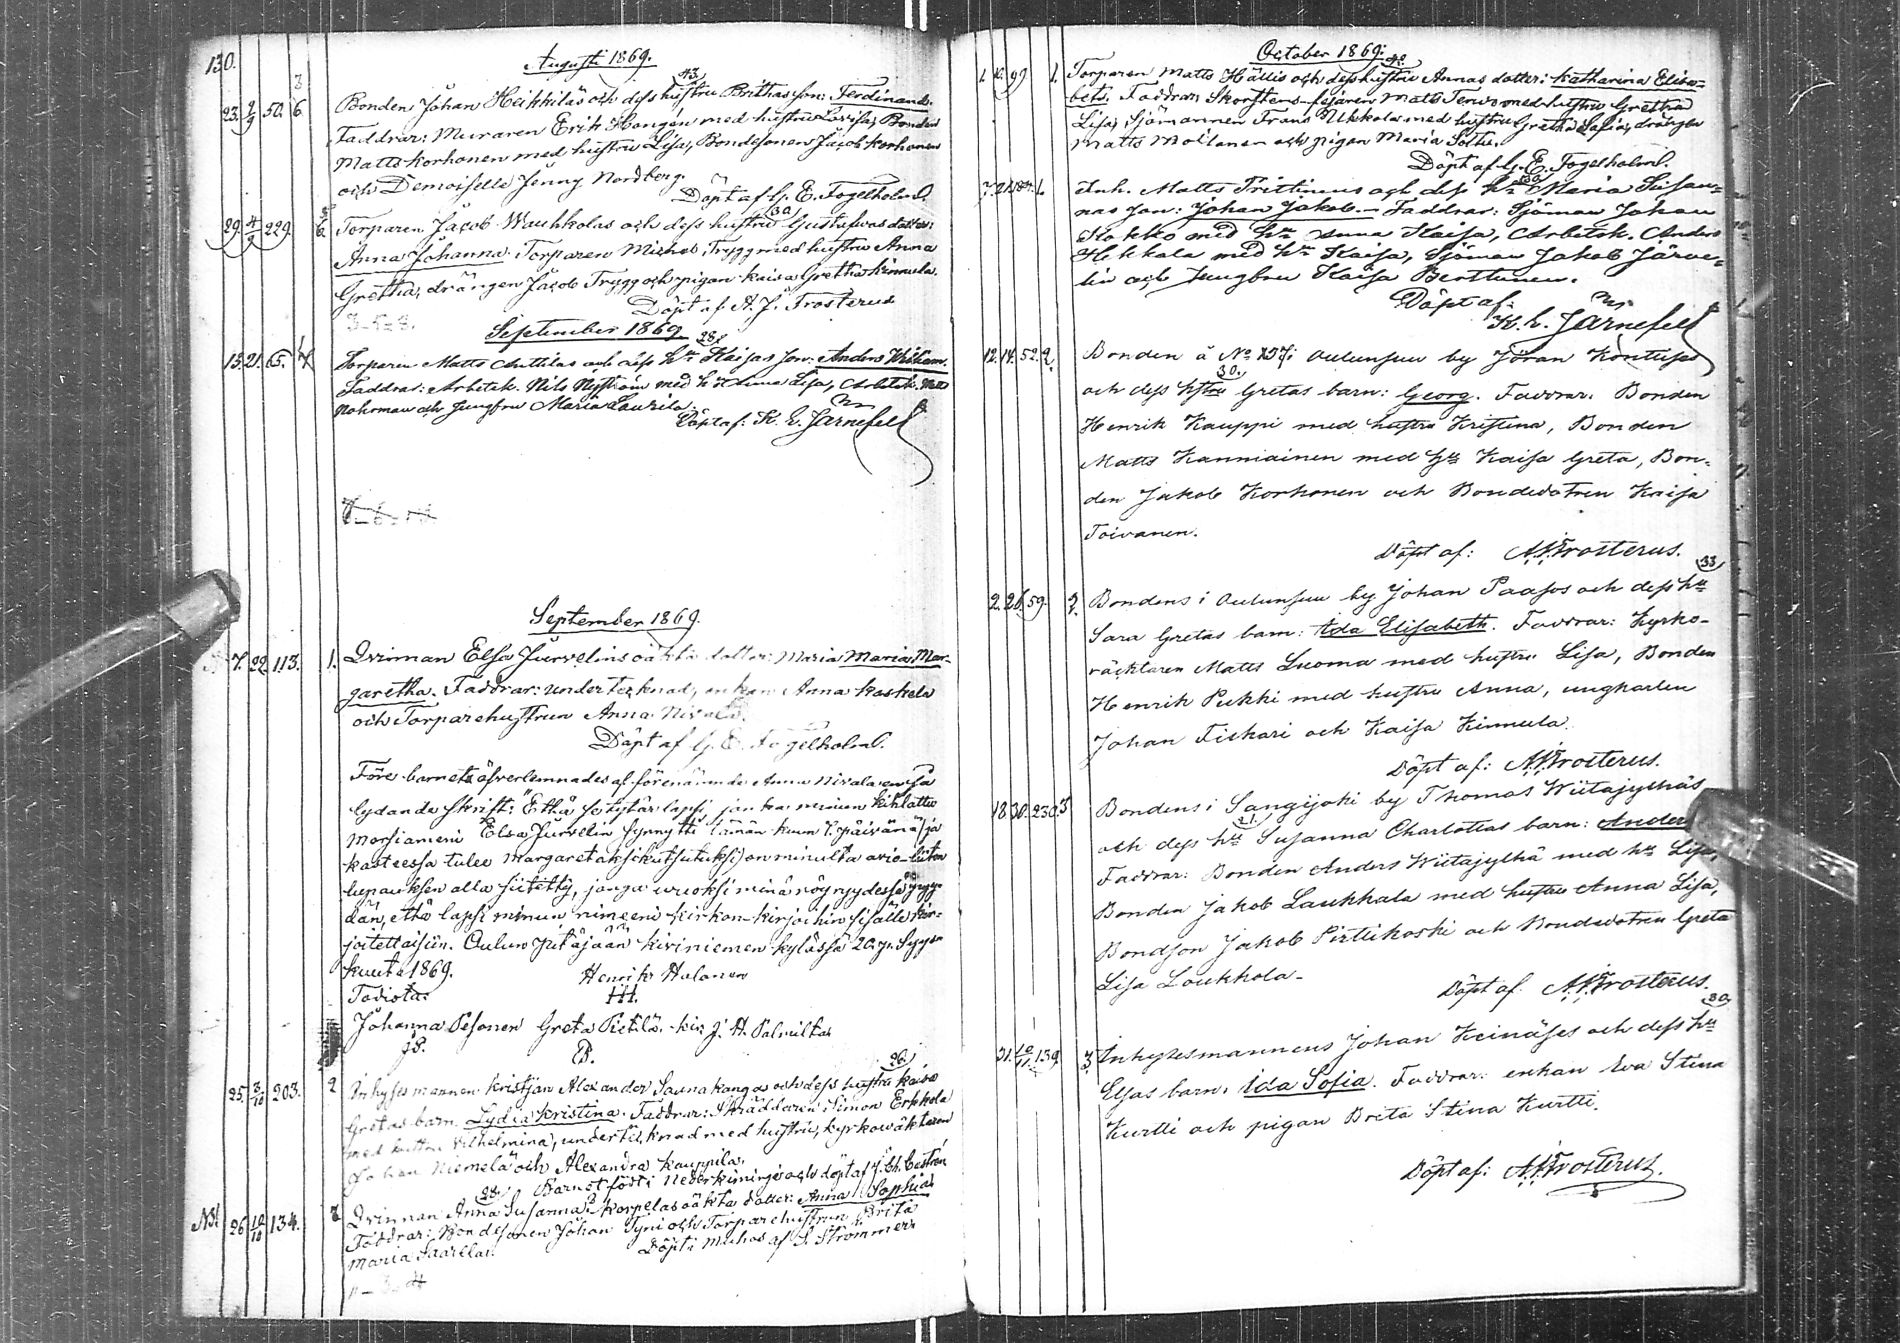 130.
Augusti 1869.
23. 2/9 50. 6. Bonden Johan Heikkiläs och dess hustru Brithas son: Ferdinand. 43.
Faddrar: Muraren Erik Hongen med hustru Lovisa, Bonden
Matts Korhonen med hustru Lisa, Bondesonen Jacob Korhonen
och Demoiselle Jenny Nordberg.
Döpt af G. E. Fogelholm.
29. 4/9 229. 6. Torparen Jacob Wauhkolas och dess hustru Gustafwas dotter: 30
Anna Johanna. Torparen Michel Trygg med hustru Anna
Gretha, drängen Jacob Trygg och pigan Kaisa Gretha Kinnula.
Döpt af A. J. Frosterus
September 1869
13. 21. 65. Torparen Matts Anttilas och dess hu Kaisas son: Anders Wilhelm. 28
Faddrar: Arbetsk. Nils Nyström med hu Anna Lisa, Arbetsk. Matts
Nohrman och Jungfru Maria Laurila.
Döpt af: K. E. Järnefelt
September 1869.
7. 22. 113. 1. Qvinnan Elsa Jurvelins oäkta dotter: Maria Mar-
garetha. Faddrar: undertecknad, enkan Anna Kaskela
och Torparehustrun Anna Nivala.
Döpt af G. E. Fogelholm.
Före barnets öfverlemnades af förenämnde Anna Nivala en så
lydande skrift: "Että se tytär lapsi, jonka minun kihlattu
morsiameni Elsa Jurvelin synnytti tämän kuun 7. päivänä (ja
kasteessa tulee Margaretaksi kutsutuksi) on minulta avio-liiton
lupauksen alla siitetty, jonga wuoksi minä nöyryydessä pyy-
dän, että lapsi minun nimeeni kirkon-kirjoihin sisälle kir-
joitettaisiin. Oulun pitäjään Kiviniemen kylässä 20. p. Syys-
kuuta 1869.
Henrik Halonen
Todista:
HH.
Johanna Pesonen Greta Pietilä. kirj. J. H. Palmilta
JP. GP.
25. 3/10 203. 2 Inhyses mannen Kristjan Alexander Saunakangas och dess hustru Kaisa 26.
Gretas barn Lydia Kristina. Faddrar: Skräddaren Simon Erkkola
med hustru Vilhelmina, undertecknad med hustru, kyrkowäktaren
Johan Niemelä och Alexandra Kauppila.
Barnet född i Nederkiminge och döpt af J. Ch. Castrén
NB! 26 10/10 134. 2 Qvinnan Anna Susanna Korpelas oäkta dotter: Anna Sophia. 28.
Faddrar: Bondesonen Johan Tyni och Torparehustrun Brita
Maria Saarela.
Döpt i Muhos af S. Strömmer
October 1869.
1. 10. 99. 1. Torparen Matts Hällis och dess hustru Annas dotter: Katharina Elisa-
beth. Faddrar: Skorstens-fejaren Matts Terwo med hustru Gretha
Lisa, Sjömannen Frans Ukkola med hustru Gretha Sofia, drängen
Matts Moilanen och pigan Maria Sotha.
Döpt af G. E. Fogelholm.
7. 21. 1. Inh. Matts Trittinens och dess hu Maria Susan- 30
nas son: Johan Jakob. — Faddrar: Sjöman Johan
Kokko med hu Anna Kaisa, Arbetsk. Anders
Hekkala med hu Kaisa, Sjöman Jakob Järve-
lin och Jungfru Kaisa Berttunen.
Döpt af:
K. E. Järnefelt
12. 14. 52. 2. Bonden å No 157 i Oulunsuu by Jöran Kontisas
och dess hustru Gretas barn: Georg. Faddrar. Bonden 30.
Henrik Kauppi med hustru Kristina, Bonden
Matts Kanniainen med hu Kaisa Greta, Bon-
den Jakob Korhonen och Bondedotren Kaisa
Toivanen.
Döpt af: A. J. Frosterus.
2. 21. 59. 2. Bondens i Oulunsuu by Johan Paasos och dess hu 33
Sara Gretas barn: Ida Elisabeth. Faddrar: Kyrko-
väcktaren Matts Luoma med hustru Lisa, Bonden
Henrik Pukki med hustru Anna, ungkarlen
Johan Fiskari och Kaisa Kinnula.
Döpt af: A. J. Frosterus.
18. 30. 230. 3 Bondens i Sangijoki by Thomas Wiitajylhäs
och dess hu Susanna Charlottas barn: Anders 21.
Faddrar: Bonden Anders Wiitajylhä med hu Lisa,
Bonden Jakob Laukkala med hustru Anna Lisa,
Bondson Jakob Pirtikoski och Bondedotren Greta
Lisa Loukkola.
Döpt af. A. J. Frosterus.
21. 10/11 139. 3. Inhysesmannens Johan Keinäses och dess hu 30
Elsas barn: Ida Sofia. Faddrar: enkan Eva Stina
Kurtti och pigan Brita Stina Kurtti.
Döpt af: A. J. Frosterus.